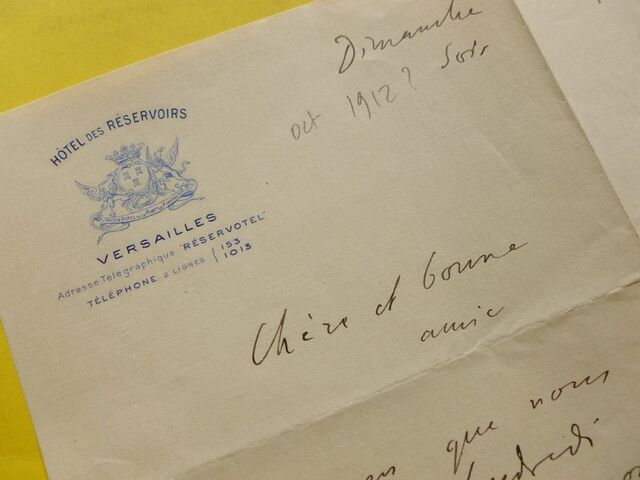 Dimanche
Soir
oct 1912?
HÔTEL DES RÉSERVOIRS
VERSAILLES
Adresse Télégraphique "RÉSERVOTEL"
TÉLÉPHONE 2 LIGNES 153
1013
Chère et bonne
amie
que nous